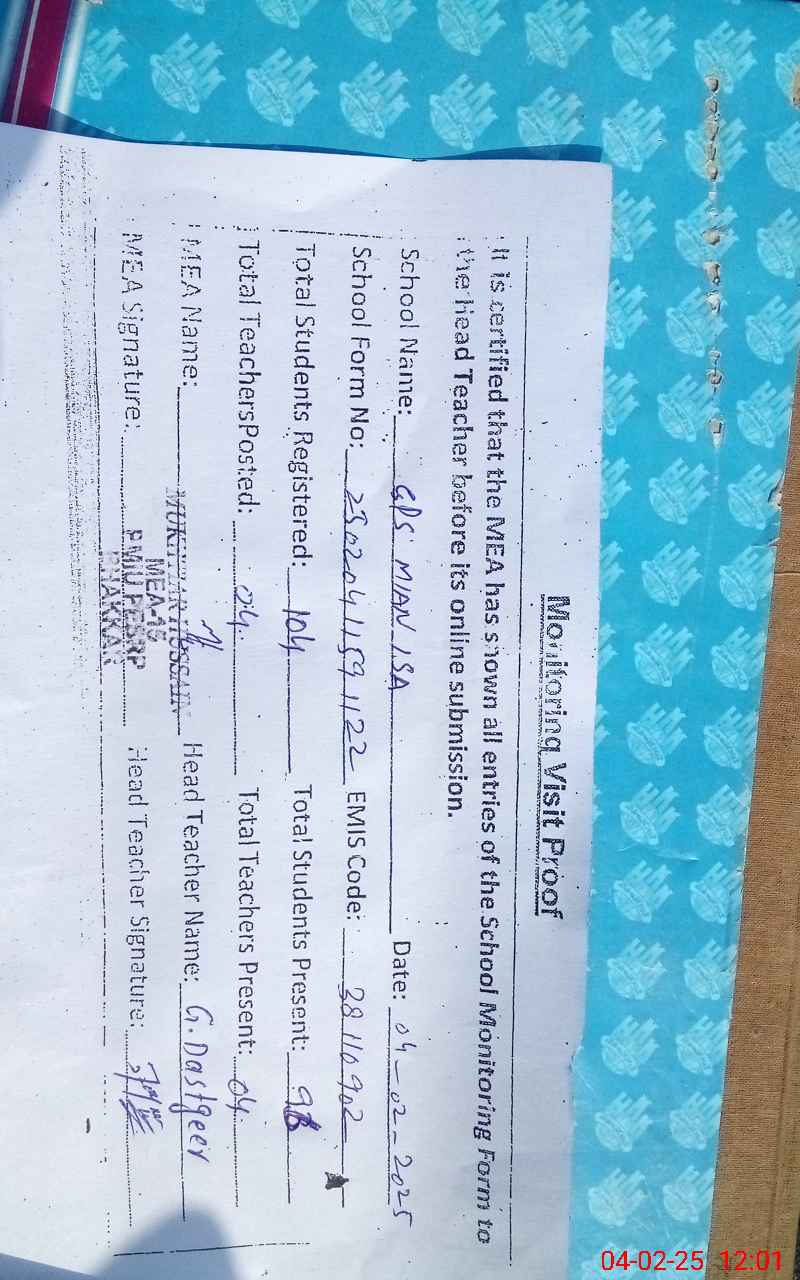 Monitoring Visit Proof
It is certified that the MEA has shown all entries of the School Monitoring Form to
the Head Teacher before its online submission.
School Name: GPS MIAN ISA Date: 04-02-2025
School Form No: 2502041159 1122 EMIS Code: 38110902
Total Students Registered: 104 Total Students Present: 96
Total TeachersPosted: 04 Total Teachers Present: 04
MEA Name: MUKHTAR HUSSAIN Head Teacher Name: G. Dastgeer
MEA Signature: Head Teacher Signature:
MEA-15
PMIU PESRP
BHAKKAR
04-02-25 12:01